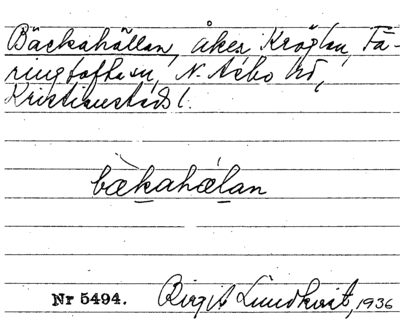 Bäckahällan, åker, Kröglan, Fä-
ringtofta sn, N. Åsbo hd,
Kristianstads l.
bækahælan
Nr 5494. Birgit Lundkvist, 1936